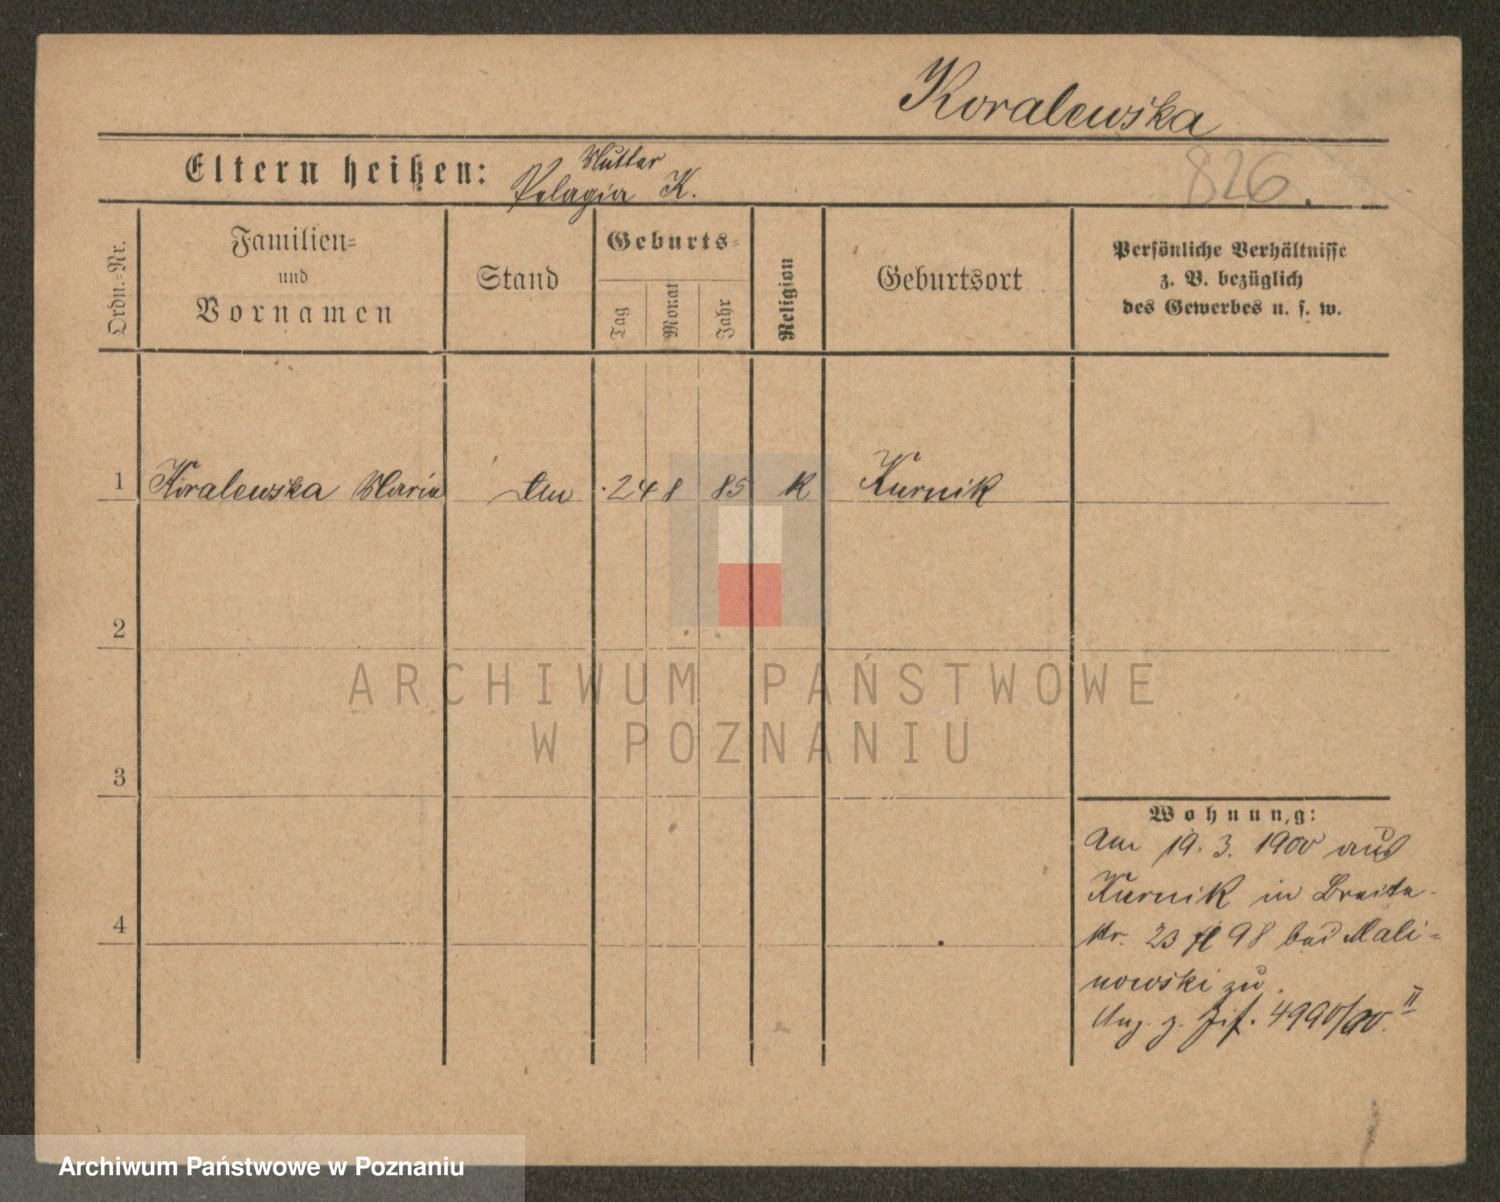 Koralewska
826.
Eltern heißen: Mutter
Pelagia K.
Ordn.-Nr.
Familien-
und
Vornamen
Stand
Geburts-
Tag
Monat
Jahr
Religion
Geburtsort
Persönliche Verhältnisse
z. B. bezüglich
des Gewerbes u. s. w.
1 Koralewska Maria 24 8 85 K Kurnik
2
3
4
ARCHIWUM PAŃSTWOWE
W POZNANIU
Wohnung:
Am 19. 3. 1900 aus
Kurnik in Breite-
str. 23 98 bei Mali-
nowski zu.
Anz. z. 4990/00 II
Archiwum Państwowe w Poznaniu